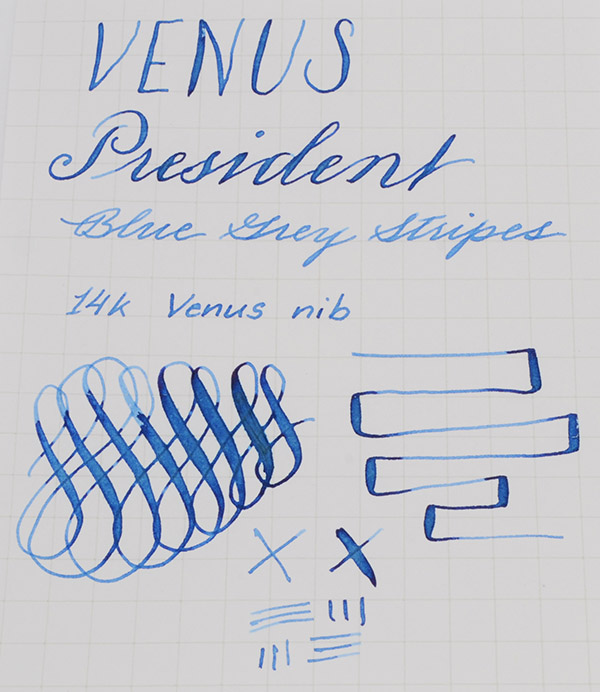 VENUS
President
Blue Grey Stripes
14k Venus nib